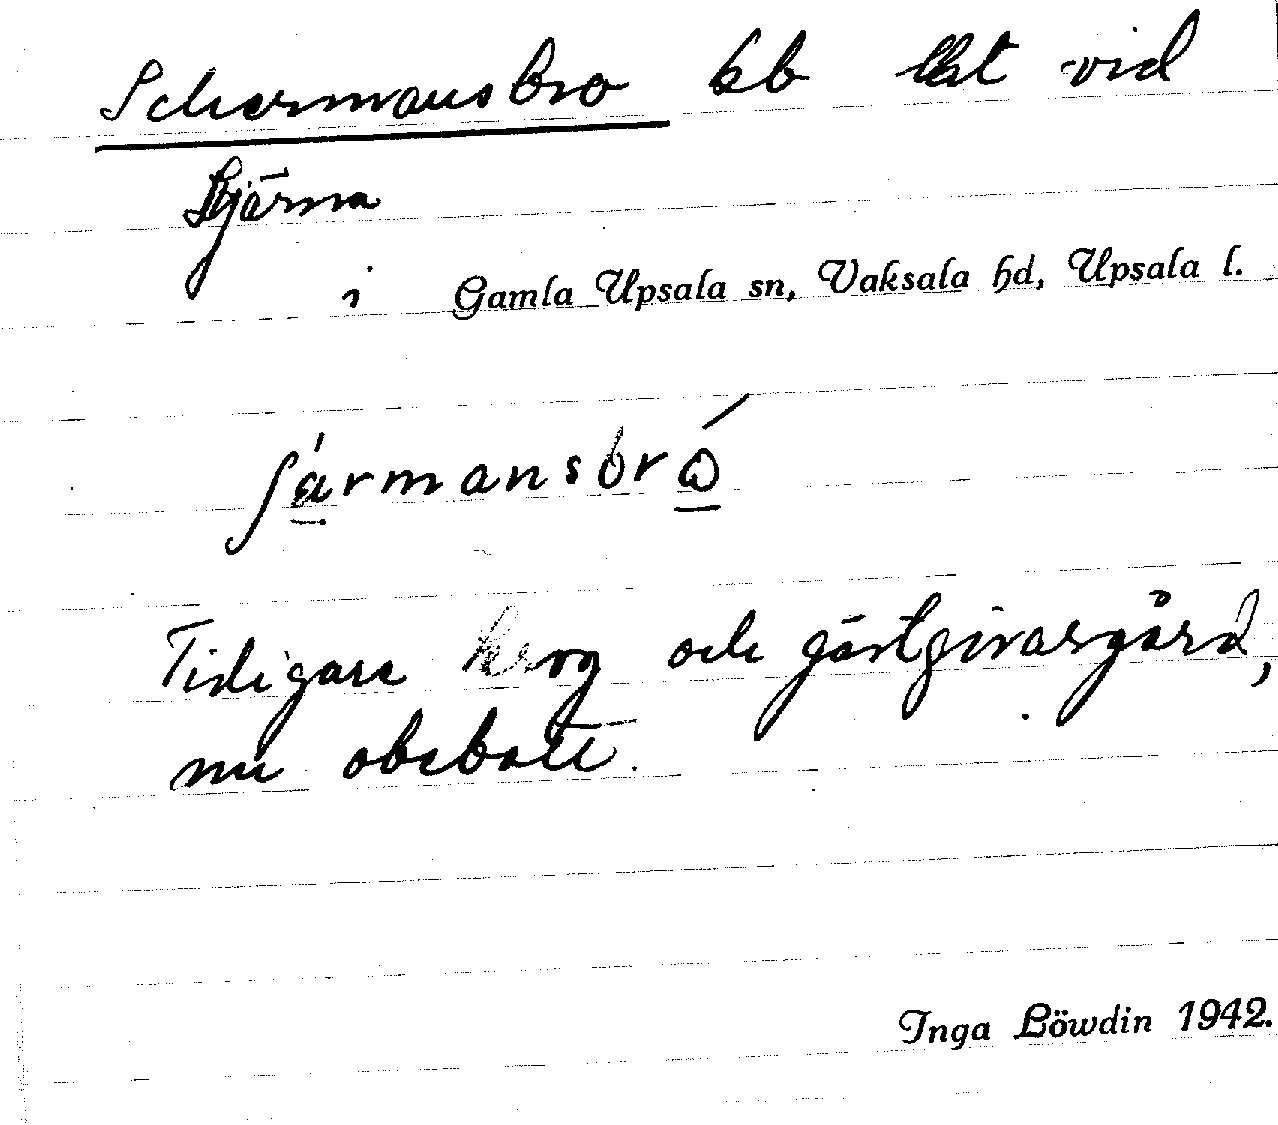 Schermansbro bb lht vid
Bjärna
i Gamla Upsala sn, Vaksala hd, Upsala l.
ʃärmansbrω
Tidigare krog och gästgivargård,
nu obebott.
Inga Löwdin 1942.